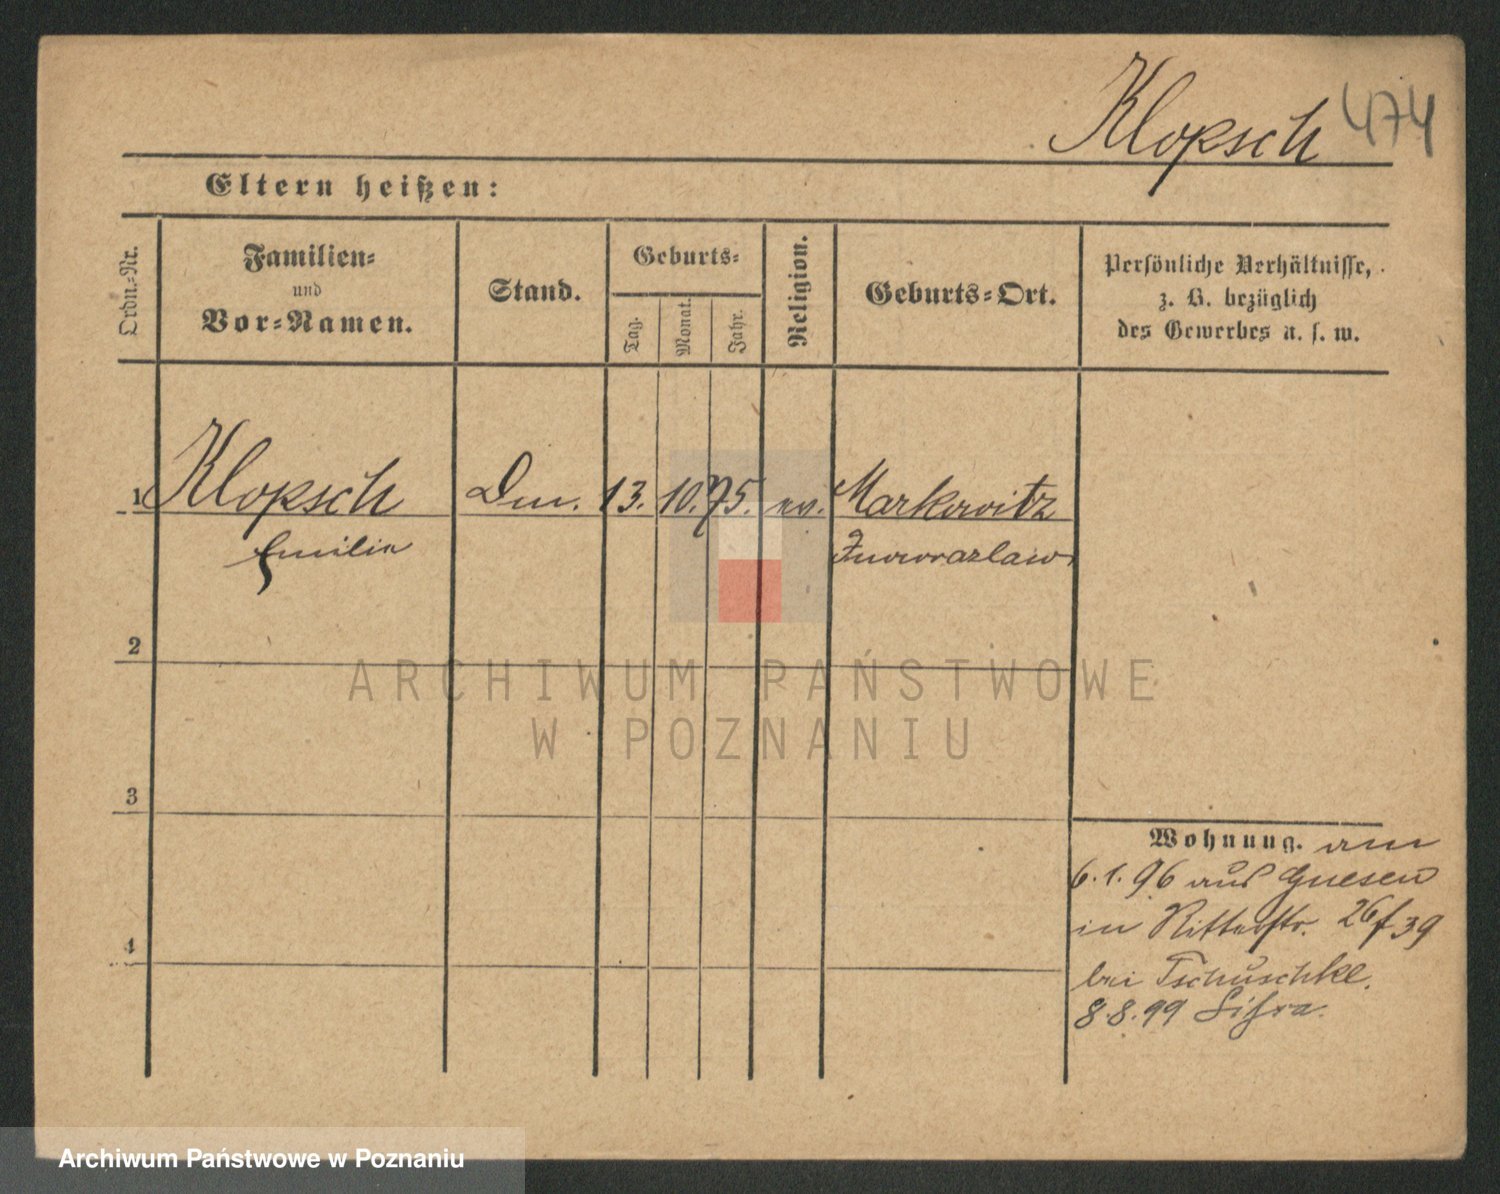 Klopsch 474
Eltern heißen:
Ordn.-Nr.
Familien-
und
Vor-Namen.
Stand.
Geburts-
Tag.
Monat.
Jahr.
Religion.
Geburts-Ort.
Persönliche Verhältnisse,
z. B. bezüglich
des Gewerbes u. s. w.
1 Klopsch Dm. 13. 10. 75. ev. Markowitz
Emilie Inowrazlaw
2
3
4
Wohnung. am
6.1.96 aus Gnesen
in Ritterstr. 26/39
bei Tschuschke.
8.8.99
ARCHIWUM PAŃSTWOWE
W POZNANIU
Archiwum Państwowe w Poznaniu